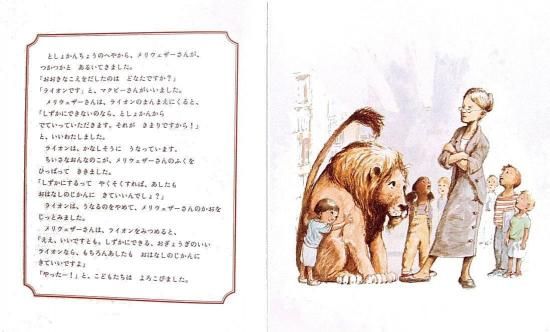 としょかんちょうのへやから、メリウェザーさんが、
つかつかと あるいてきました。
「おおきなこえをだしたのは どなたですか?」
「ライオンです」と、マクビーさんがいいました。
メリウェザーさんは、ライオンのまんまえにくると、
「しずかにできないのなら、としょかんから
でていっていただきます。それが きまりですから!」
と、いいわたしました。
ライオンは、かなしそうに うなっています。
ちいさなおんなのこが、メリウェザーさんのふくを
ひっぱって ききました。
「しずかにするって やくそくすれば、あしたも
おはなしのじかんに きていいんでしょ?」
ライオンは、うなるのをやめて、メリウェザーさんのかおを
じっとみました。
メリウェザーさんは、ライオンをみつめると、
「ええ、いいですとも。しずかにできる、おぎょうぎのいい
ライオンなら、もちろんあしたも おはなしのじかんに
きていいですよ」
「やったー!」と、こどもたちは よろこびました。